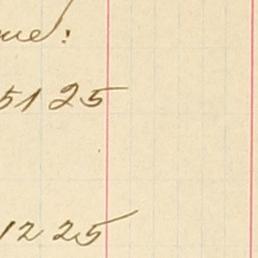 ue:
51 25
12 25